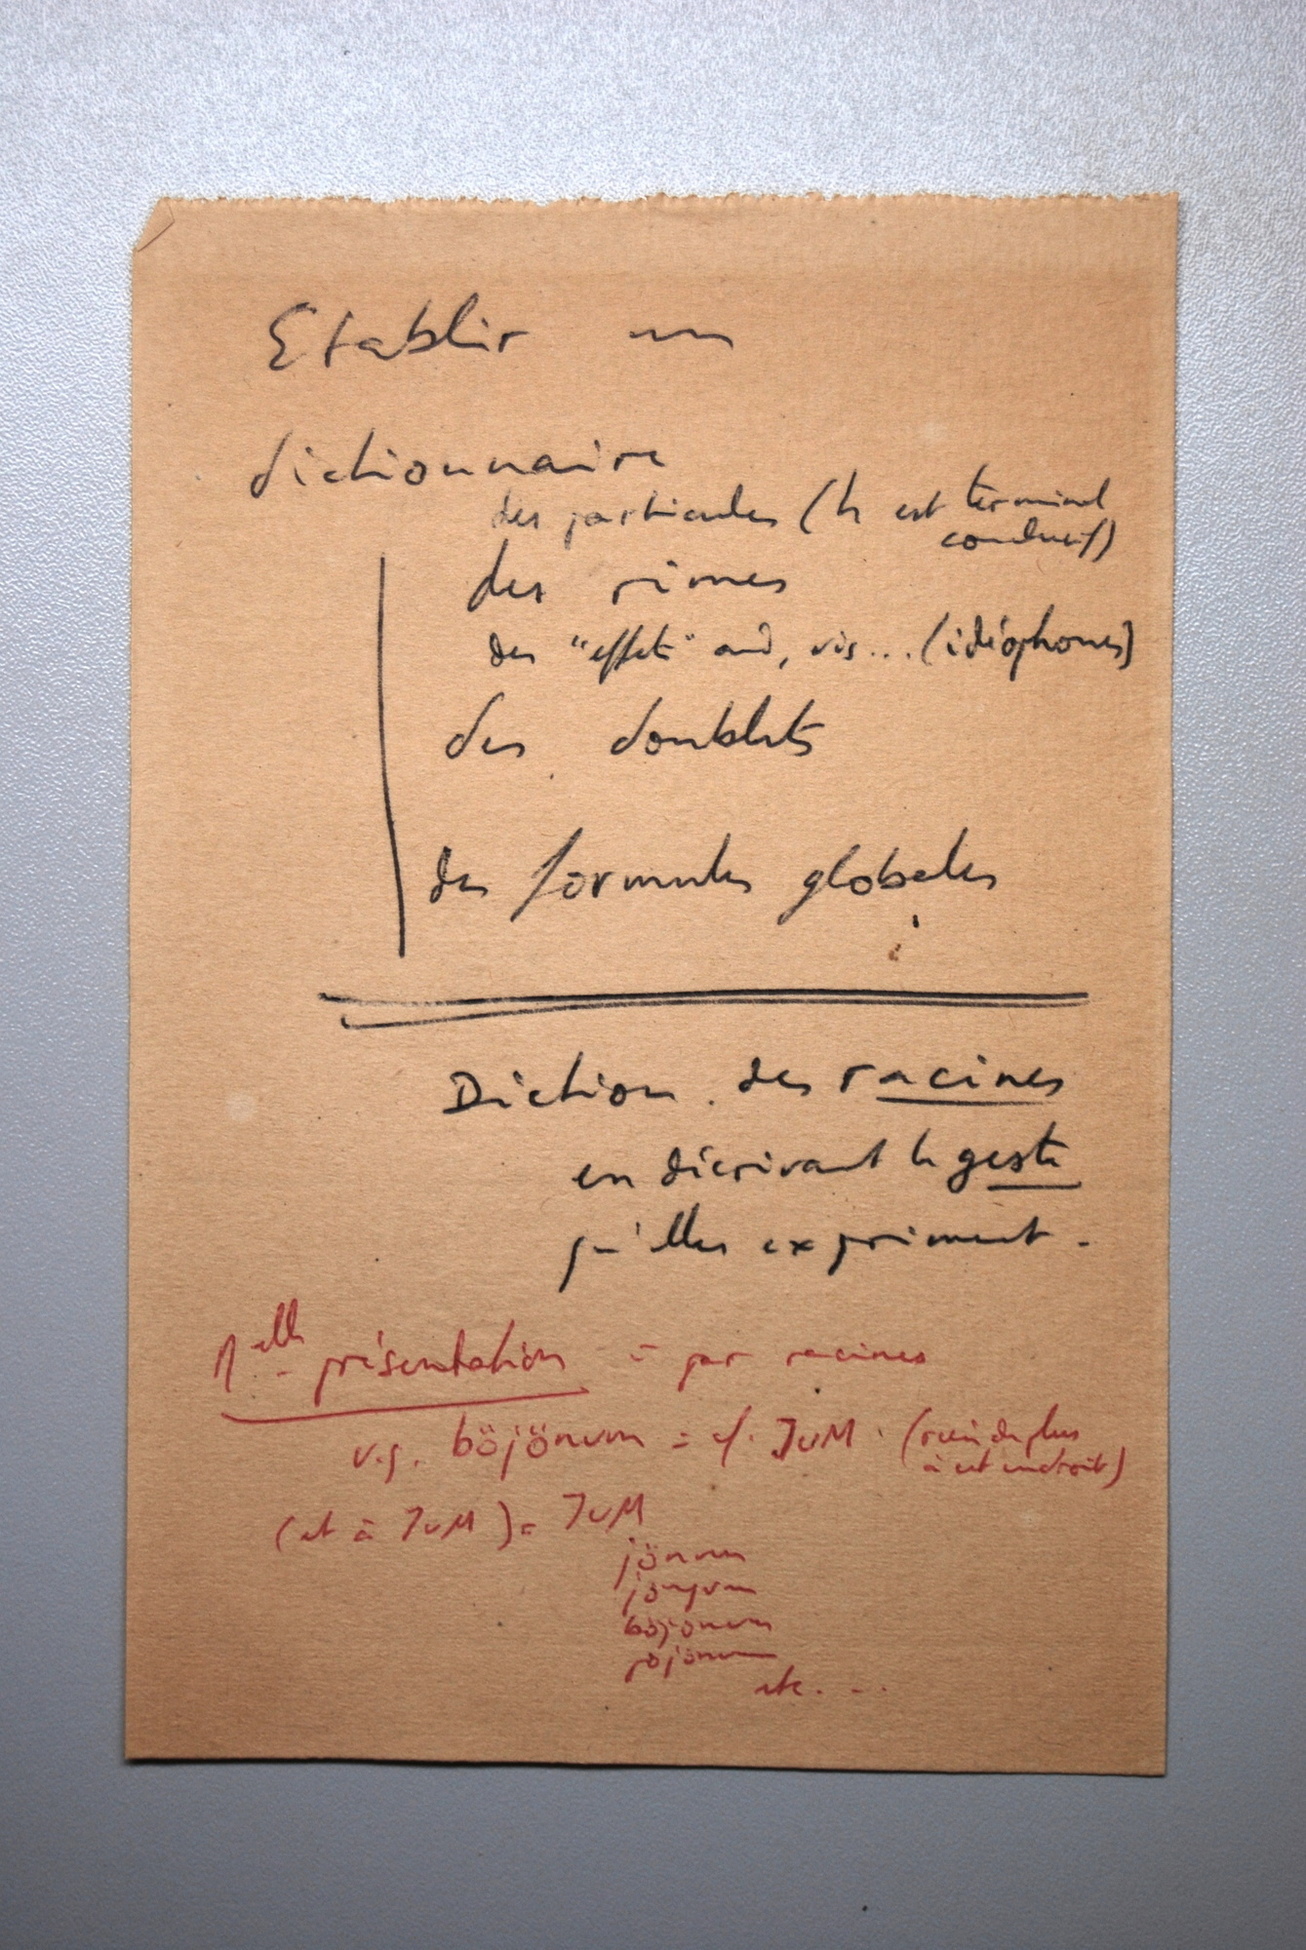 Etablir un
dictionnaire
des particules (h est terminal
conduisif)
des rimes
des "effets" aud, vis... (idéophones)
des doublets
des formules globales
Diction. des racines
en décrivant le geste
qu'elles expriment.
présentation = par racines
v.g. böjönum = cf. JuM. (rien de plus
à cet endroit)
(et à JuM) = JuM
jönum
böjönum
pöjönum
etc...